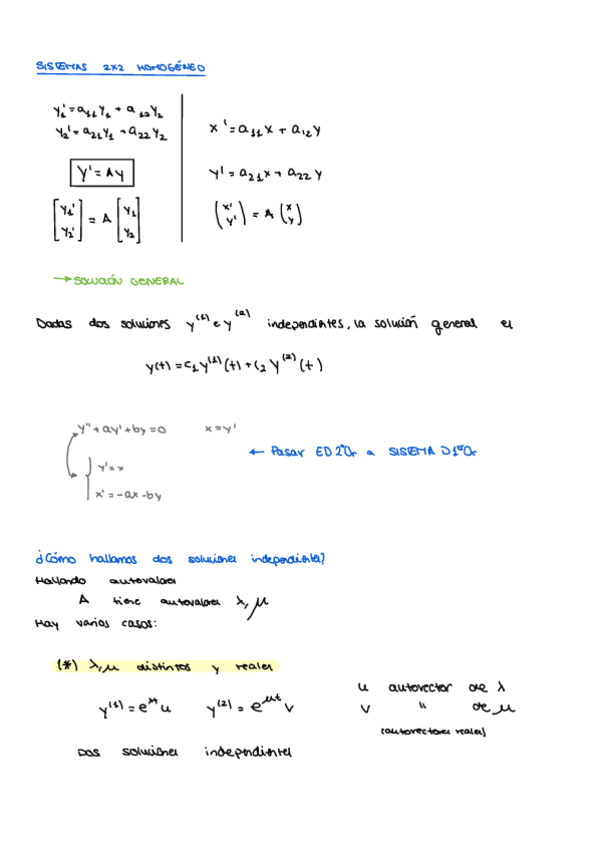 SISTEMAS 2X2 HOMOGÉNEO
y₁' = a₁₁y₁ + a₁₂y₂
y₂' = a₂₁y₁ + a₂₂y₂
Y' = Ay
[y₁' y₂'] = A [y₁ y₂]
x' = a₁₁x + a₁₂y
y' = a₂₁x + a₂₂y
(x' y') = A (x y)
→ SOLUCIÓN GENERAL
Dadas dos soluciones y⁽¹⁾ e y⁽²⁾ independientes, la solución general es
y(t) = c₁y⁽¹⁾(t) + c₂y⁽²⁾(t)
y'' + ay' + by = 0 x = y'
y' = x
x' = -ax - by
← Pasar ED 2ºOr a SISTEMA D 1ºOr
¿Cómo hallamos dos soluciones independientes?
Hallando autovalores
A tiene autovalores λ, μ
Hay varios casos:
(*) λ, μ distintos y reales
y⁽¹⁾ = e^λt u y⁽²⁾ = e^μt v
u autovector de λ
v " de μ
(autovectores reales)
Dos soluciones independientes